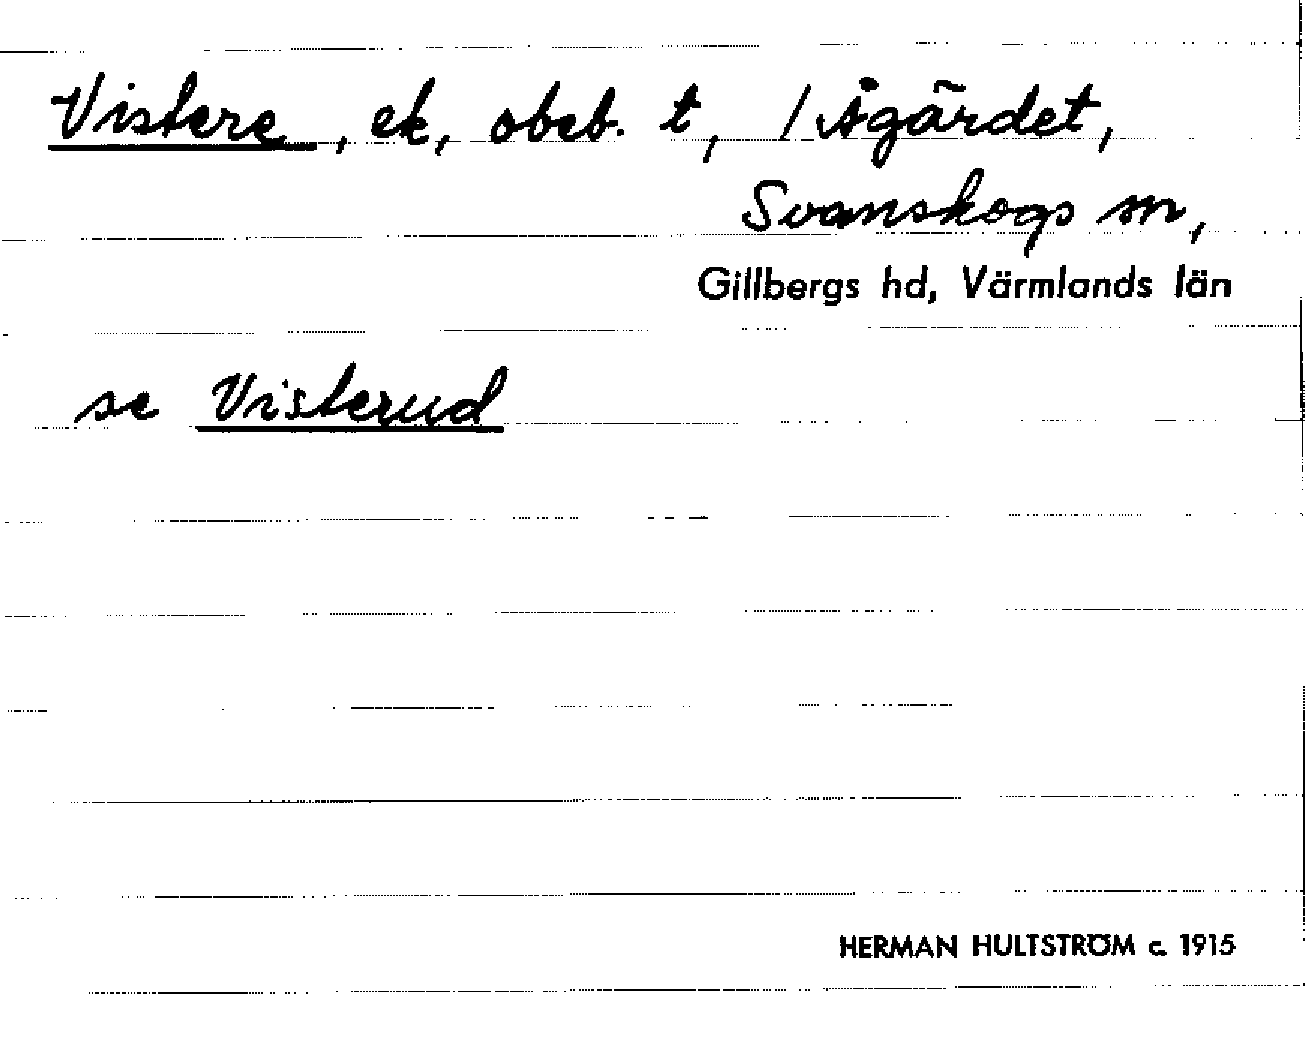 Vistere, ek, obeb. t, 1 Ågärdet,
Svanskogs sn,
Gillbergs hd, Värmlands län
se Visterud
HERMAN HULTSTRÖM c. 1915